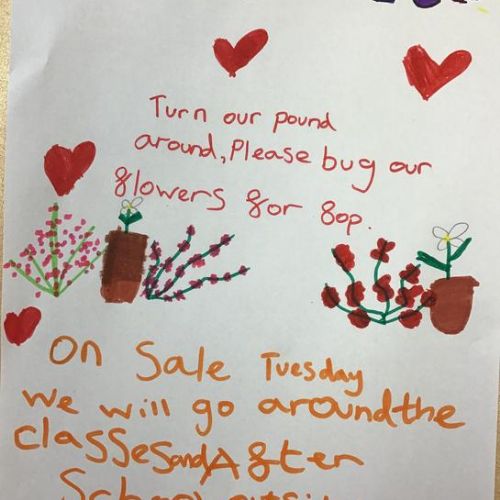 Turn our pound
around, Please bug our
flowers for 80p.
On Sale Tuesday
we will go around the
classes and After
School